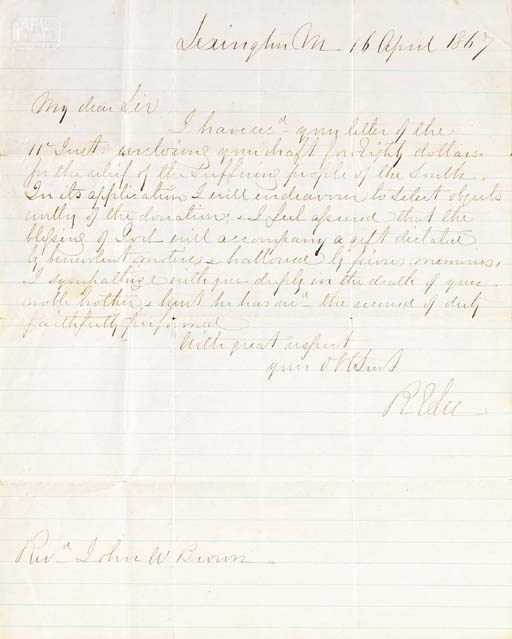 Lexington Va 16 April 1867
My dear Sir
I have recd your letter of the
11th Inst: enclosing your draft for Eighty dollars
for the relief of the Suffering people of the South.
In its application I will endeavour to select objects
worthy of the donation, & I feel assured that the
blessing of God will accompany a gift dictated
by benevolent motives & hallowed by pious memories.
I sympathise with you deeply in the death of your
noble brother, & trust he has recd the reward of duty
faithfully performed
With great respect
your obt Servt
R E Lee
Revd John W Brown